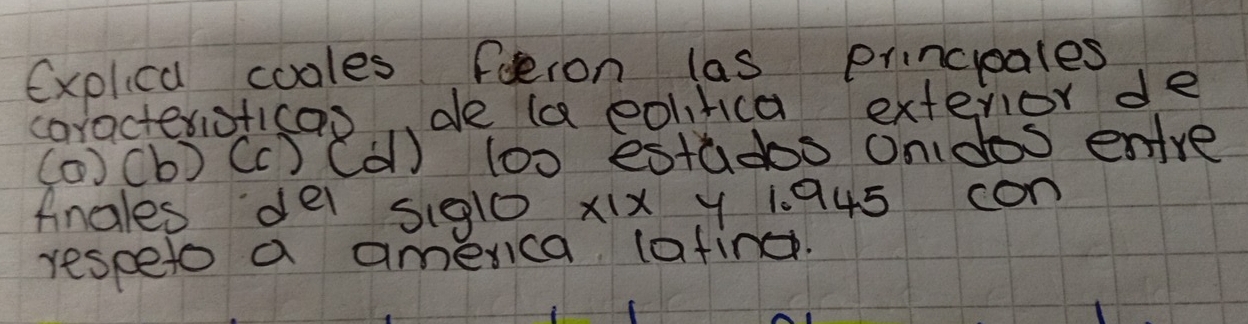 Explica cuales fueron las principales
caracteristicas de la politica exterior de
(a) (b) (c) (d) los estados unidos entre
finales del siglo XIX y 1.945 con
respeto a américa latina.